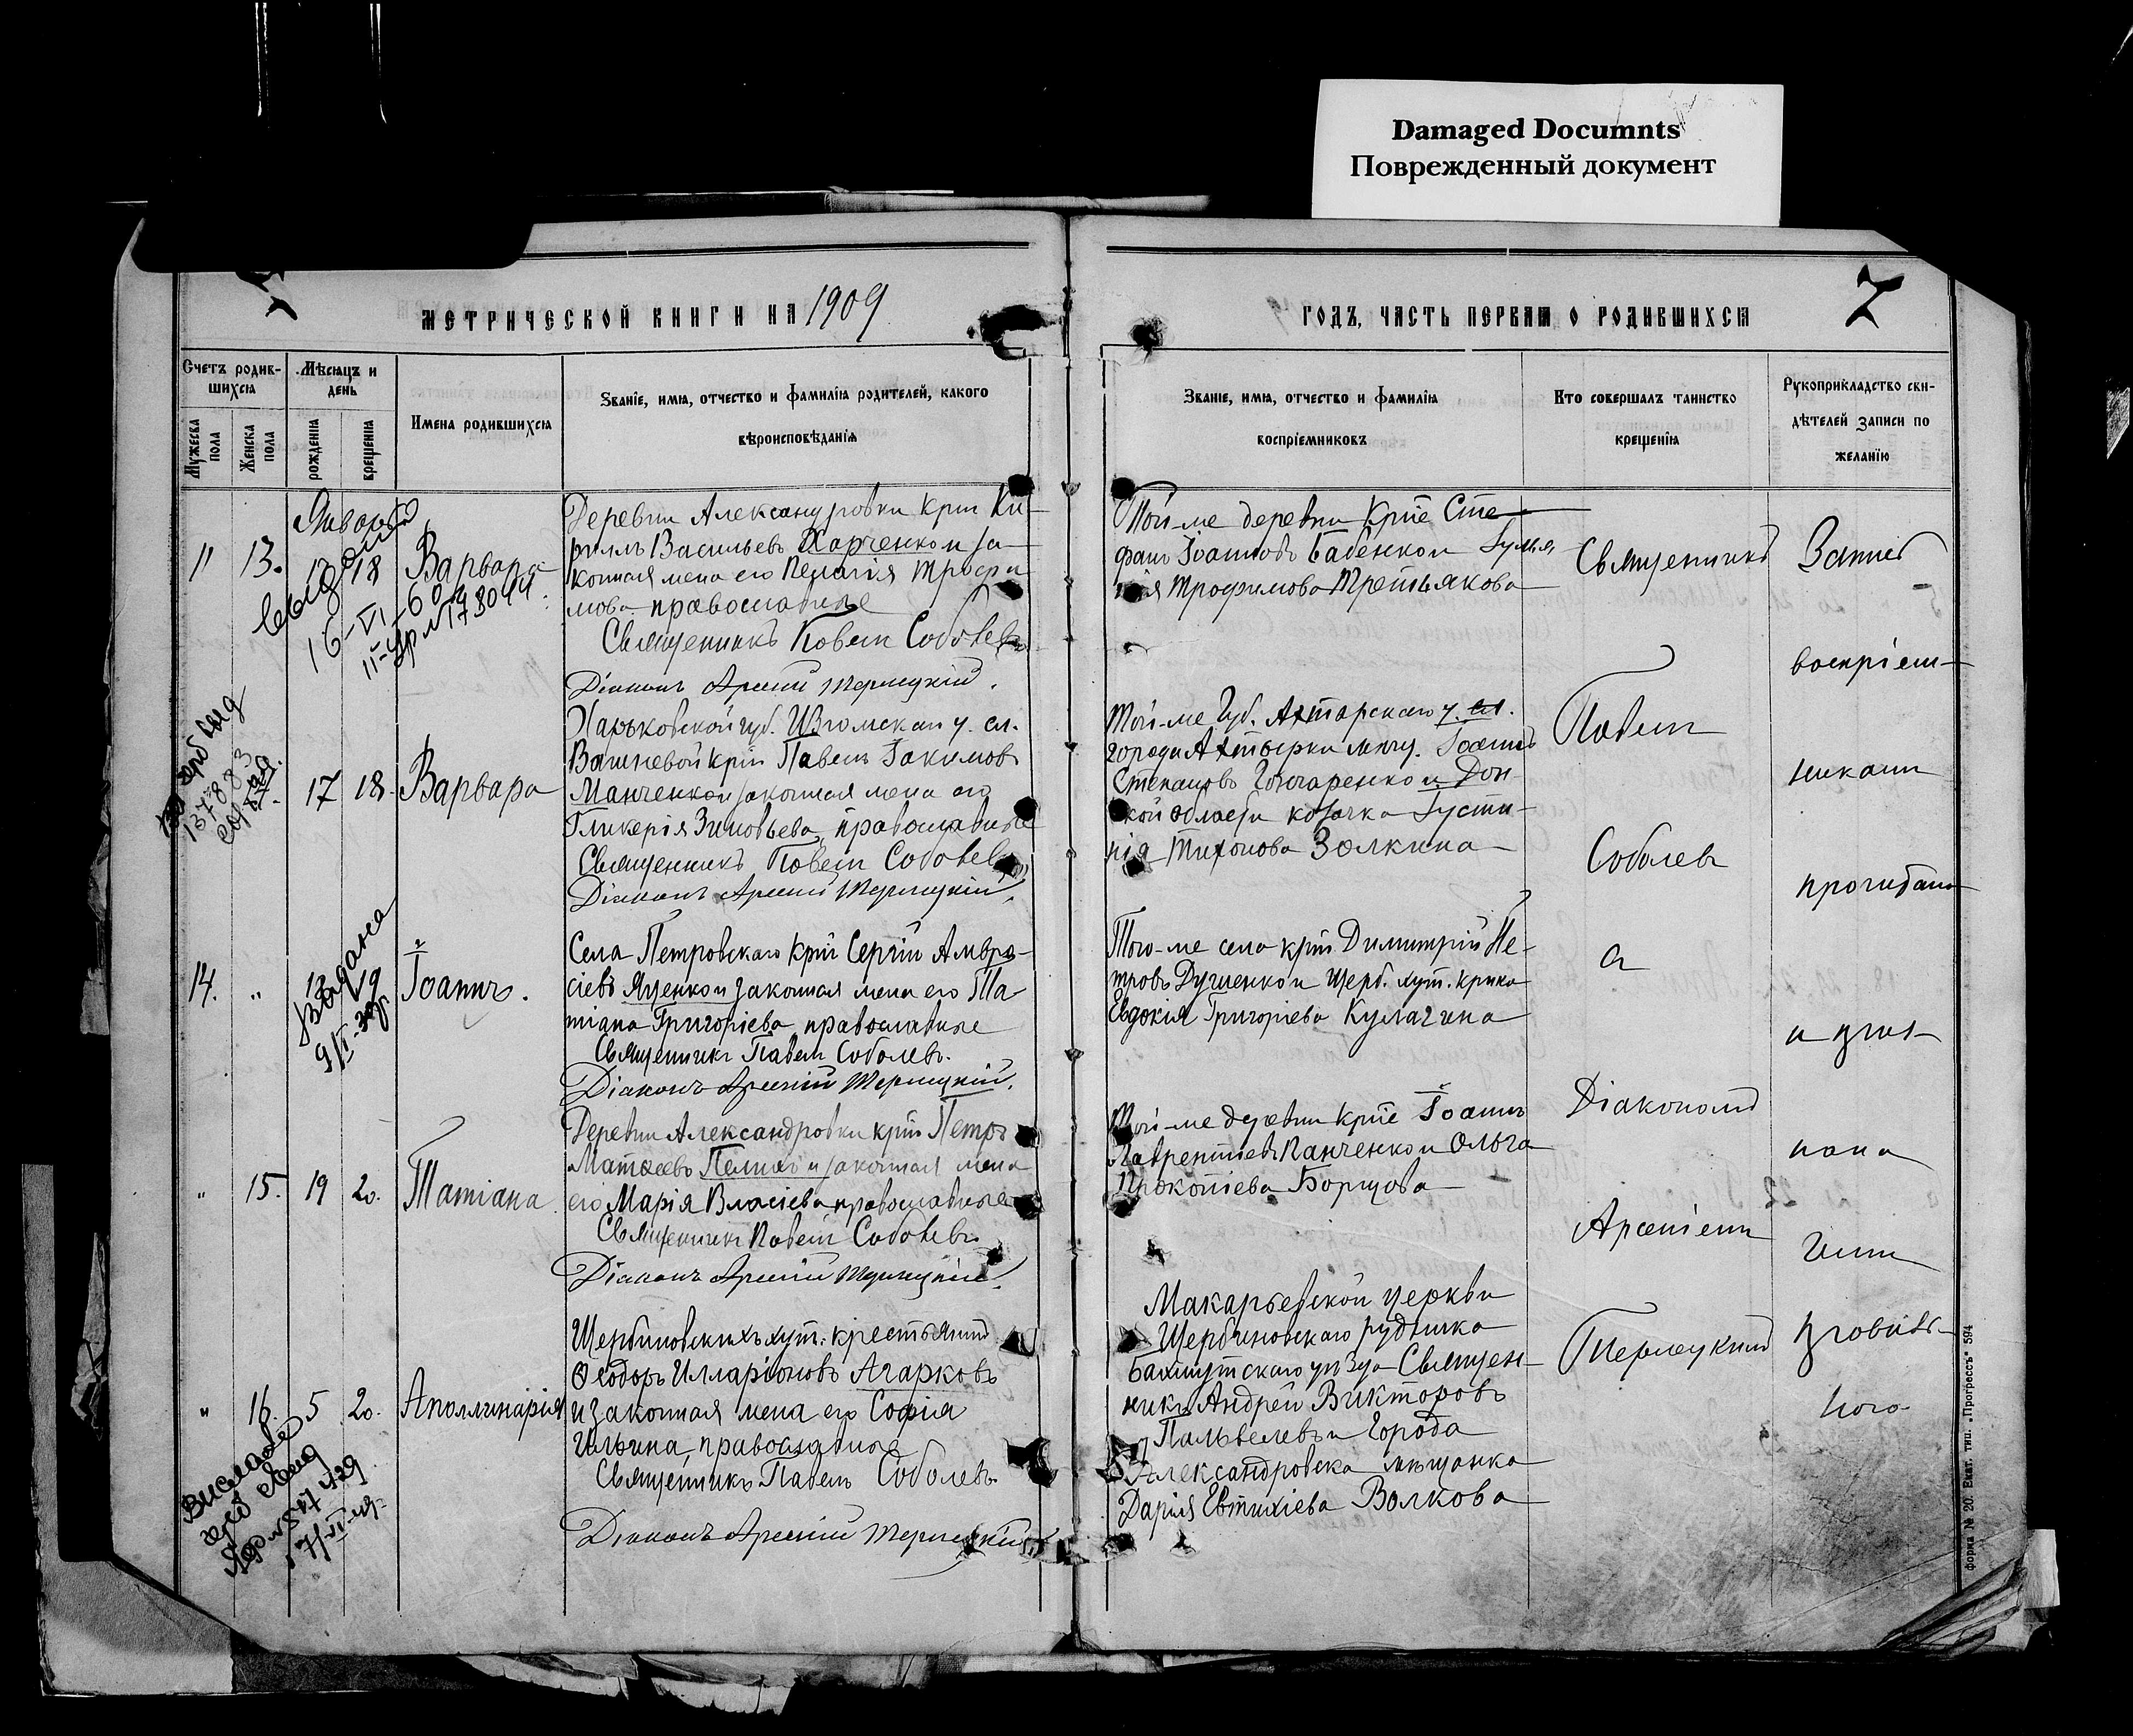 Damaged Documnts
Поврежденный документ
МЕТРИЧЕСКОЙ КНИГИ НА 1909
ГОДЪ, ЧАСТЬ ПЕРВАЯ О РОДИВШИХСЯ
7
Счетъ родив-
шихся
Мужеска
пола
Женска
пола
Мѣсяцъ и
день
рожденія
крещенія
Имена родившихся
Званіе, имя, отчество и фамилія родителей, какого
вѣроисповѣданія
Званіе, имя, отчество и фамилія
воспріемниковъ
Кто совершалъ таинство
крещенія
Рукоприкладство сви-
дѣтелей записи по
желанію
Январь
" 13. 18 Варвара
16-VI-60
Деревни Александровки крнъ Ки-
риллъ Васильевъ Харченко и за-
конная жена его Пелагія Трофи
мова православные
Священникъ Павелъ Соболевъ
Діаконъ Арсеній Терлецкій.
Той-же деревни Крне Сте-
фанъ Іоанновъ Бабенко и
Трофимова Третьякова
17 18. Варвара
Харьковской губ. Изюмскаго у. сл.
крнъ Павелъ Іакимовъ
Манченко и законная жена его
Гликерія Зиновьева, православные
Священникъ Павелъ Соболевъ
Діаконъ Арсеній Терлецкій.
Той-же Губ. Ахтырскаго у.
города Ахтырки мѣщ. Іоаннъ
Степановъ Гончаренко и Дон-
ской области козачка Іусти-
нія Тихонова Золкина
14. " 19 Іоаннъ.
Выдана
Села Петровскаго Крнъ Сергій Амвро-
сіевъ Яценко и законная жена его Та-
тіана Григоріева, православные
Священникъ Павелъ Соболевъ.
Діаконъ Арсеній Терлецкій.
Того-же села крнъ Димитрій Пе-
тровъ Душенко и Щерб. хут. крнка
Евдокія Григоріева Кулагина
" 15. 19 20. Татіана
Деревни Александровки крнъ Петръ
Матѳеевъ и законная жена
его Марія Власіева православные
Священникъ Павелъ Соболевъ.
Діаконъ Арсеній Терлецкій.
Той-же деревни Крне Іоаннъ
Лаврентіевъ Панченко и Ольга
Прокопіева Борцова
" 16. 5 20. Аполлинарія
Щербиновскихъ хут. крестьянинъ
Ѳеодоръ Илларіоновъ Агарковъ
и законная жена его Софія
Ильина, православные
Священникъ Павелъ Соболевъ
Діаконъ Арсеній Терлецкій
Макарьевской церкви
Щербиновскаго рудника
Бахмутскаго уѣзда Священ-
никъ Андрей Викторовъ
и Города
Александровска мѣщанка
Дарія Евтихіева Волкова
Священникъ
Павелъ
Соболевъ
съ
Діакономъ
Арсеніемъ
Терлецкимъ
воспріем-
никами
прочитана
Форма № 20. Екат. тип. „Прогрессъ" 594